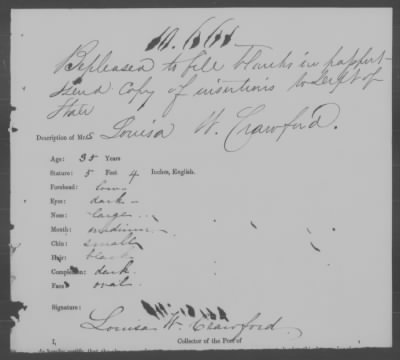 10.661
Be pleased to file blanks in passport
& send copy of insertions to Depft of
State
Description of Mrs Louisa W. Crawford.
Age: 35 Years
Stature: 5 Feet 4 Inches, English.
Forehead: low
Eyes: dark
Nose: large
Mouth: medium
Chin: small
Hair: black
Complexion: dark
Face oval
Signature:
Louisa W. Crawford
I, Collector of the Port of